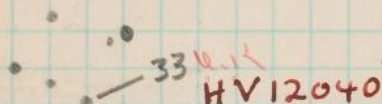 33
HV12040